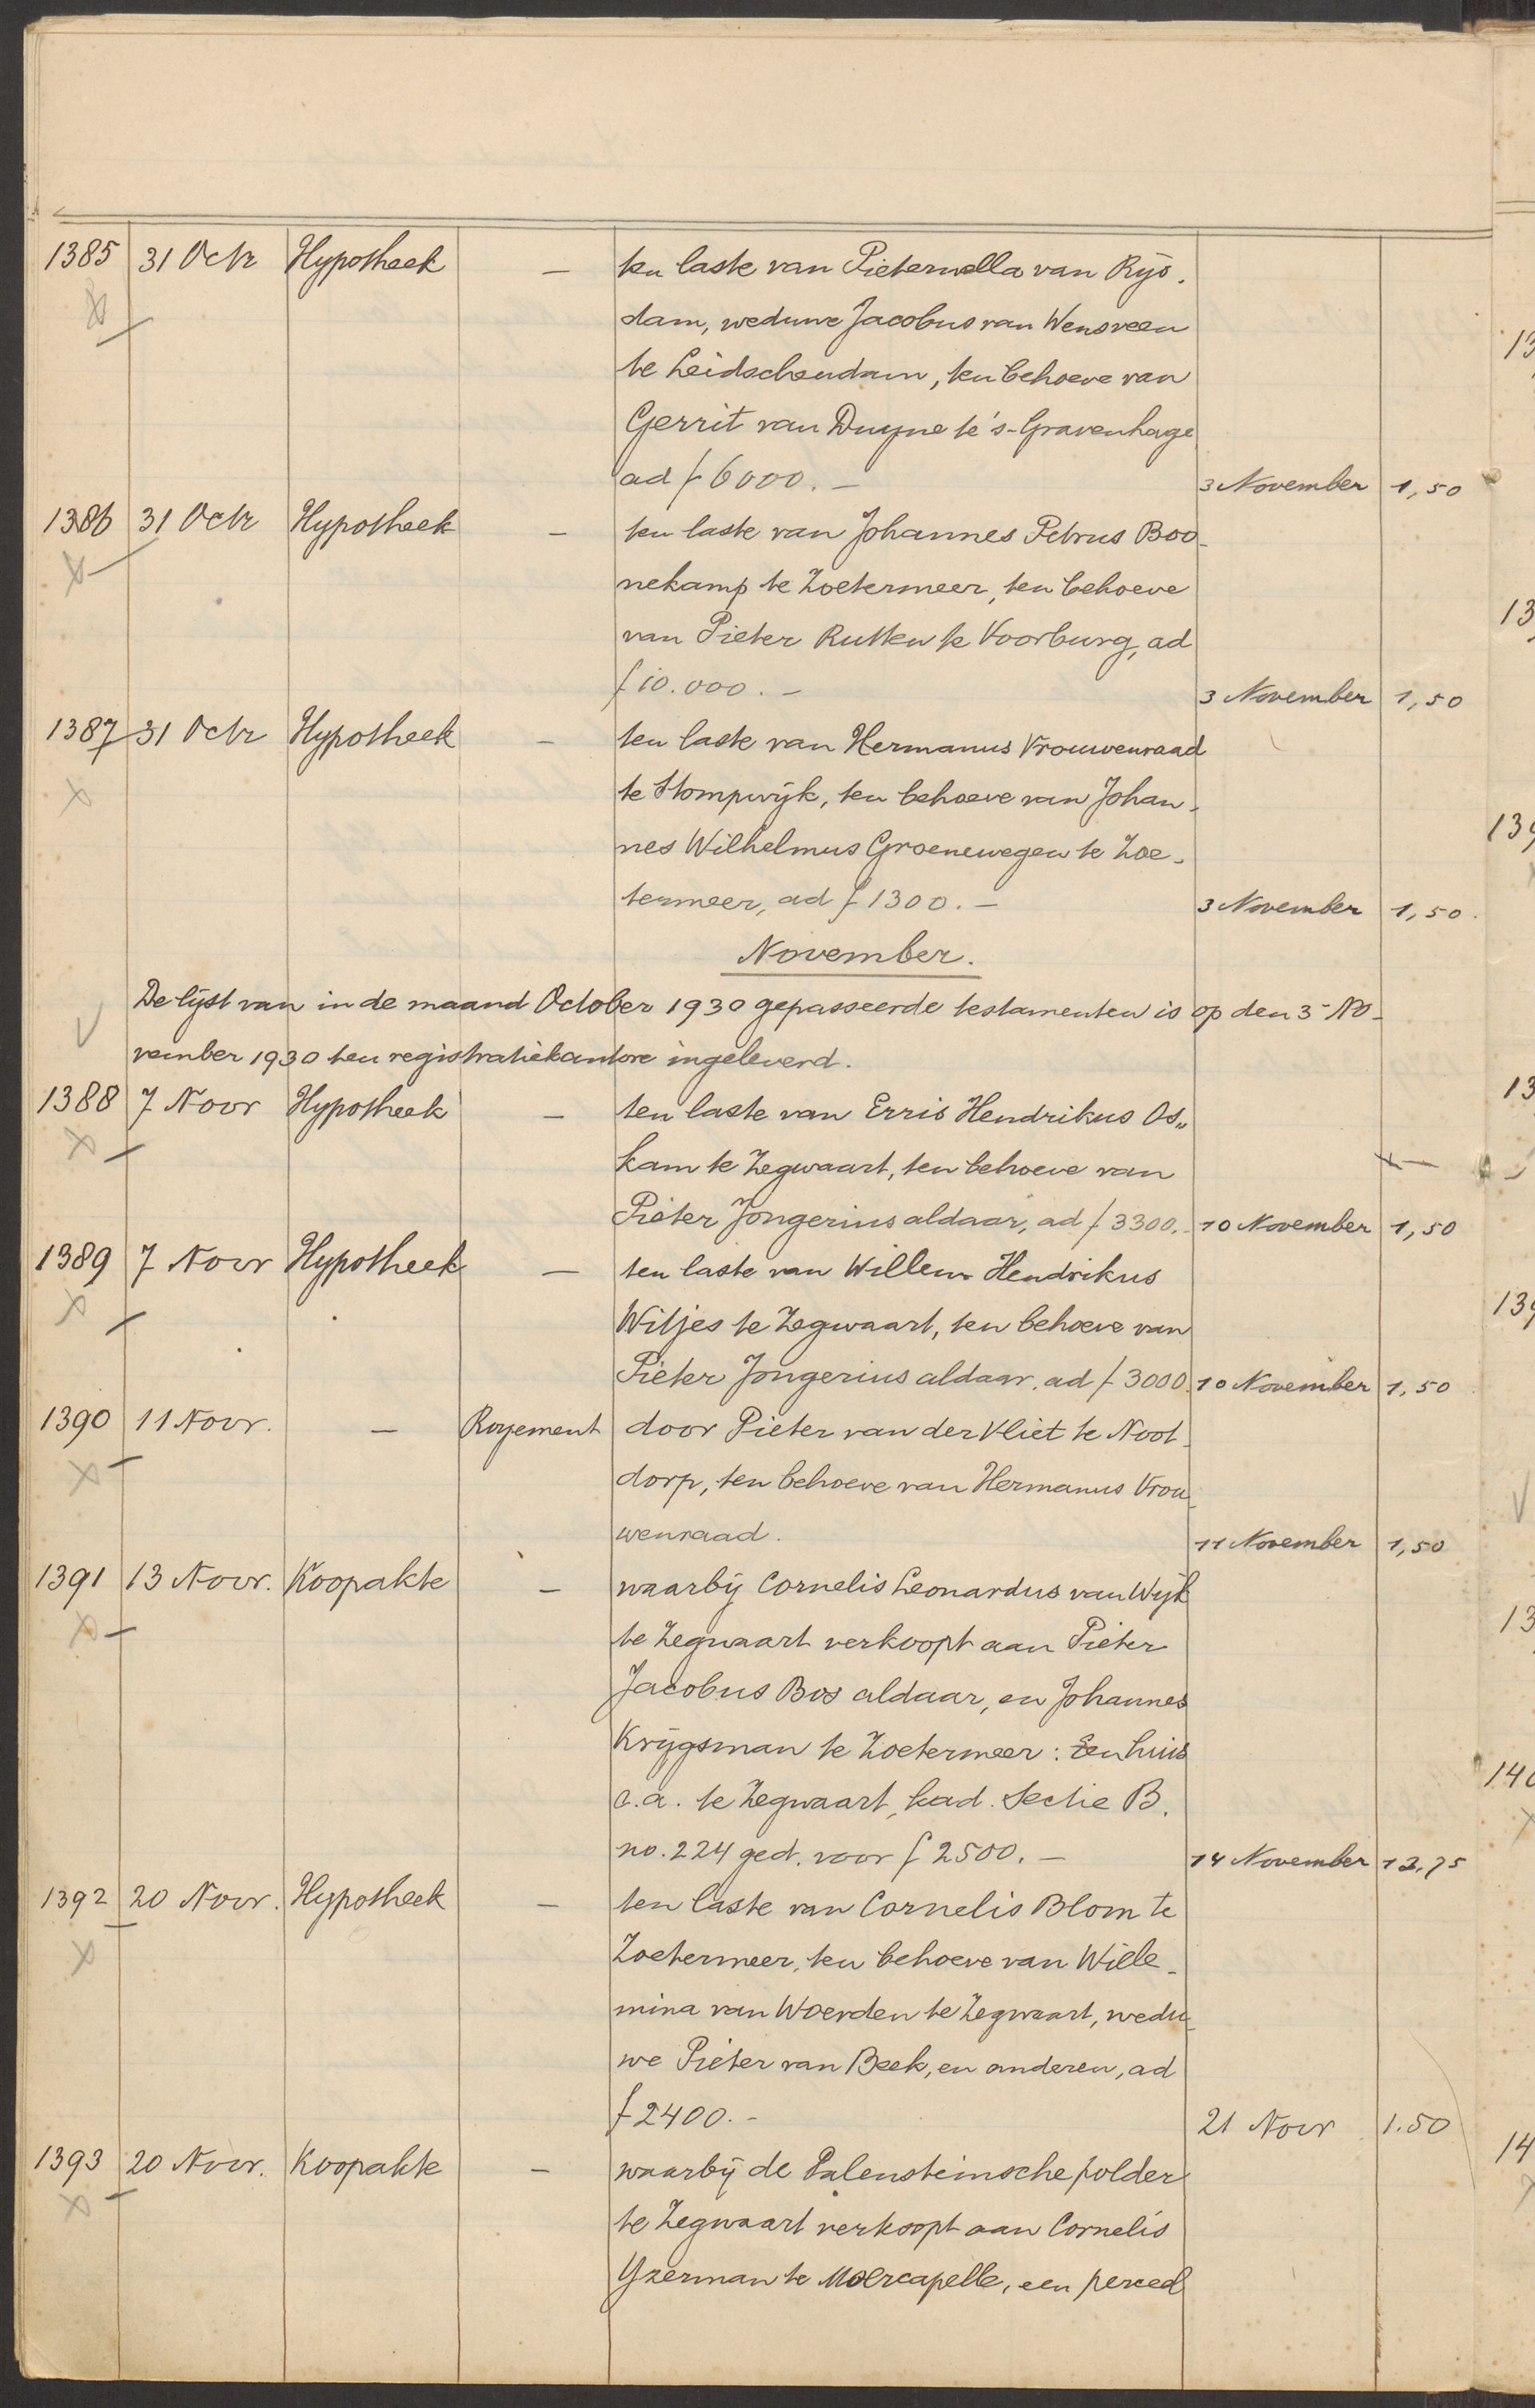 1385 31 Octr Hypotheek — ten laste van Pieternella van Rijs-
dam, weduwe Jacobus van Wensveen
te Leidschendam, ten behoeve van
Gerrit van Duyne te 's-Gravenhage
ad f 6000.— 3 November 1,50
1386 31 Octr Hypotheek — ten laste van Johannes Petrus Boo-
nekamp te Zoetermeer, ten behoeve
van Pieter Rutten te Voorburg, ad
f 10.000.— 3 November 1,50
1387 31 Octr Hypotheek — ten laste van Hermanus Vrouwenraad
te Stompwijk, ten behoeve van Johan-
nes Wilhelmus Groenewegen te Zoe-
termeer, ad f 1300.— 3 November 1,50.
November.
De lijst van in de maand October 1930 gepasseerde testamenten is op den 3 No-
vember 1930 ten registratiekantore ingeleverd.
1388 7 Novr Hypotheek — ten laste van Erris Hendrikus Os„
kam te Zegwaart, ten behoeve van
Pieter Jongerius aldaar, ad f 3300.- 10 November 1,50
1389 7 Novr Hypotheek — ten laste van Willem Hendrikus
Witjes te Zegwaart, ten behoeve van
Pieter Jongerius aldaar, ad f 3000. 10 November 1,50
1390 11 Novr. — Royement door Pieter van der Vliet te Noot-
dorp, ten behoeve van Hermanus Vrou-
wenraad. 11 November 1,50
1391 13 Novr. Koopakte — waarbij Cornelis Leonardus van Wijk
te Zegwaart verkoopt aan Pieter
Jacobus Bos aldaar, en Johannes
Krijgsman te Zoetermeer: Een huis
c.a. te Zegwaart, kad. Sectie B.
no. 224 ged. voor f 2500.— 14 November 12,75
1392 20 Novr. Hypotheek — ten laste van Cornelis Blom te
Zoetermeer, ten behoeve van Wille-
mina van Woerden te Zegwaart, wedu-
we Pieter van Beek, en anderen, ad
f 2400.- 21 Novr 1.50
1393 20 Novr. Koopakte — waarbij de Palensteinsche polder
te Zegwaart verkoopt aan Cornelis
Yzerman te Moercapelle, een perceel